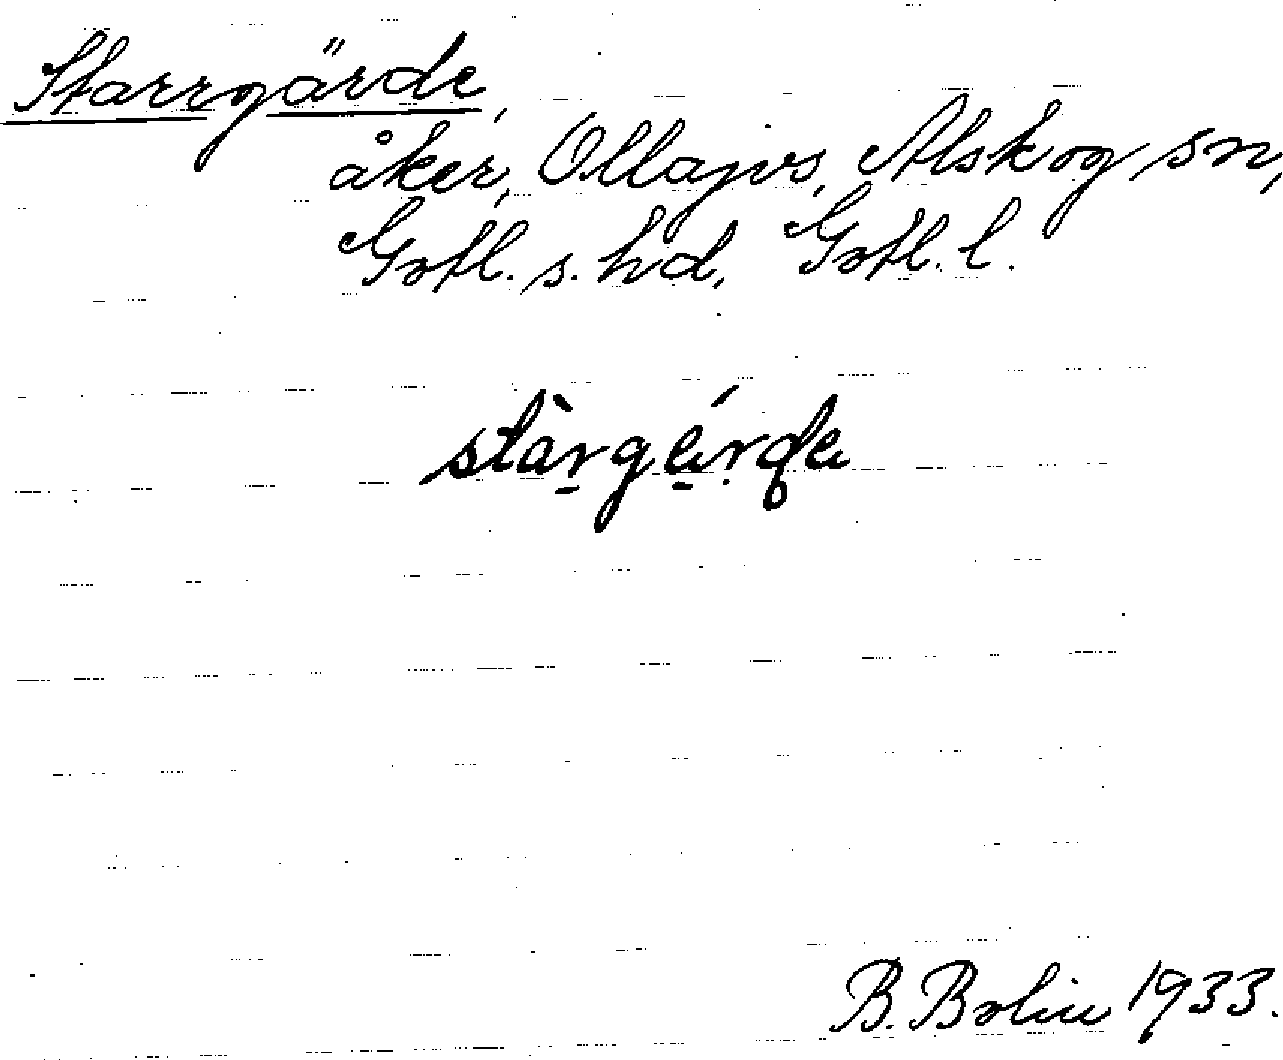 Starrgärde,
åker, Ollajvs, Alskog sn,
Gotl. s. hd, Gotl. l.
stàrgärde
B. Bolin 1933.